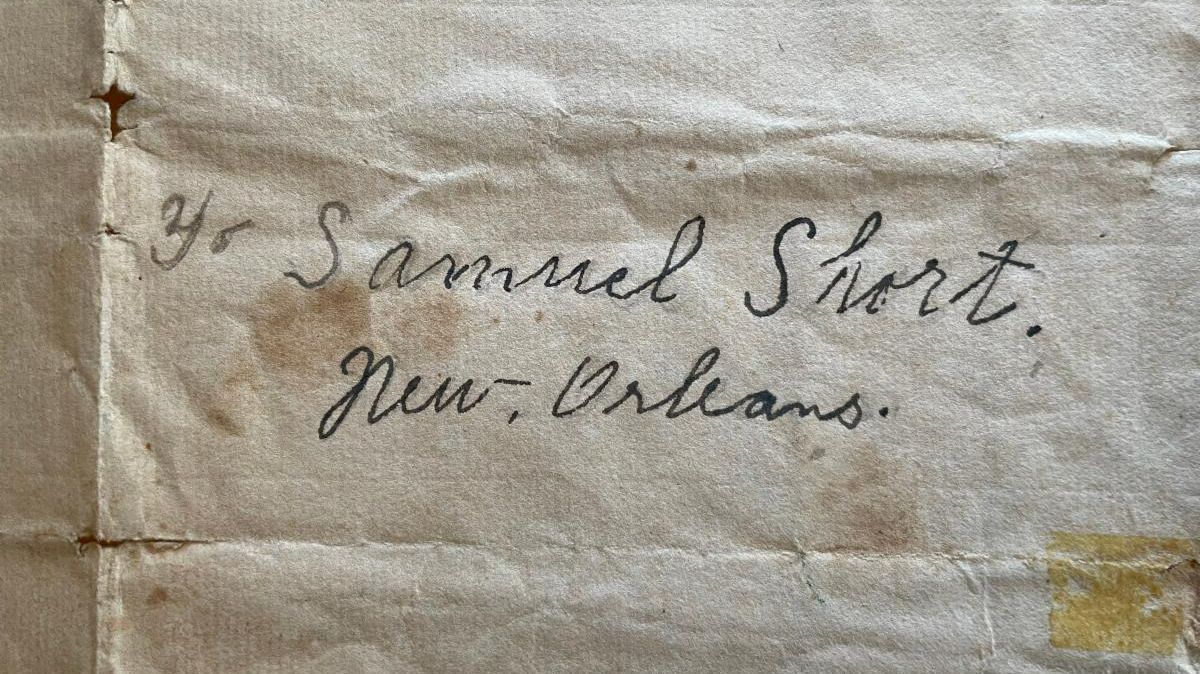 To Samuel Short.
New, Orleans.